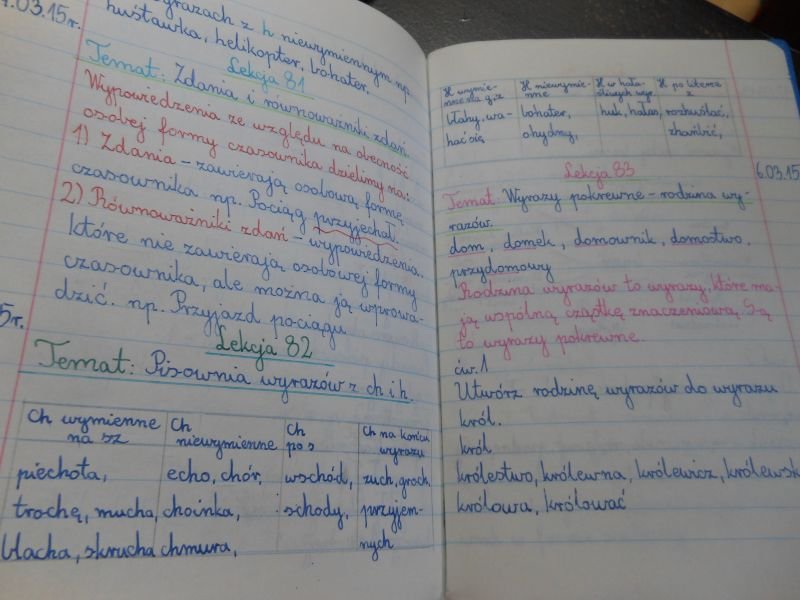 .03.15r.
wyrazach z h niewymiennym np.
huśtawka, helikopter, bohater.
Lekcja 81
Temat: Zdania i równoważniki zdań.
Wypowiedzenia ze względu na obecność
osobej formy czasownika dzielimy na:
1) Zdania – zawierają osobową formę
czasownika np. Pociąg przyjechał.
2) Równoważniki zdań – wypowiedzenia,
które nie zawierają osobowej formy
czasownika, ale można ją wprowa-
dzić. np. Przyjazd pociągu.
5r.
Lekcja 82
Temat: Pisownia wyrazów z ch i h.
Ch wymienne na sz | Ch niewymienne | Ch po s | Ch na końcu wyrazu
piechota, | echo, chór, | wschód, | zuch, groch,
trochę, mucha, | choinka, | schody, | przyjem-
blacha, skrucha | chmura, | | nych
H wymie- | H niewymie- | H w hała- | H po literze
nne na g, ż | nne | śliwych wyr. | z
błahy, wa- | bohater, | huk, hałas, | rozhuśtać,
hać się, | ohydny, | | zhańbić,
Lekcja 83
6.03.15
Temat: Wyrazy pokrewne – rodzina wy-
razów.
dom, domek, domownik, domostwo,
przydomowy
Rodzina wyrazów to wyrazy, które ma-
ją wspólną cząstkę znaczeniową. Są
to wyrazy pokrewne.
ćw. 1
Utwórz rodzinę wyrazów do wyrazu
król.
król
królestwo, królewna, królewicz, królewsk
królowa, królować